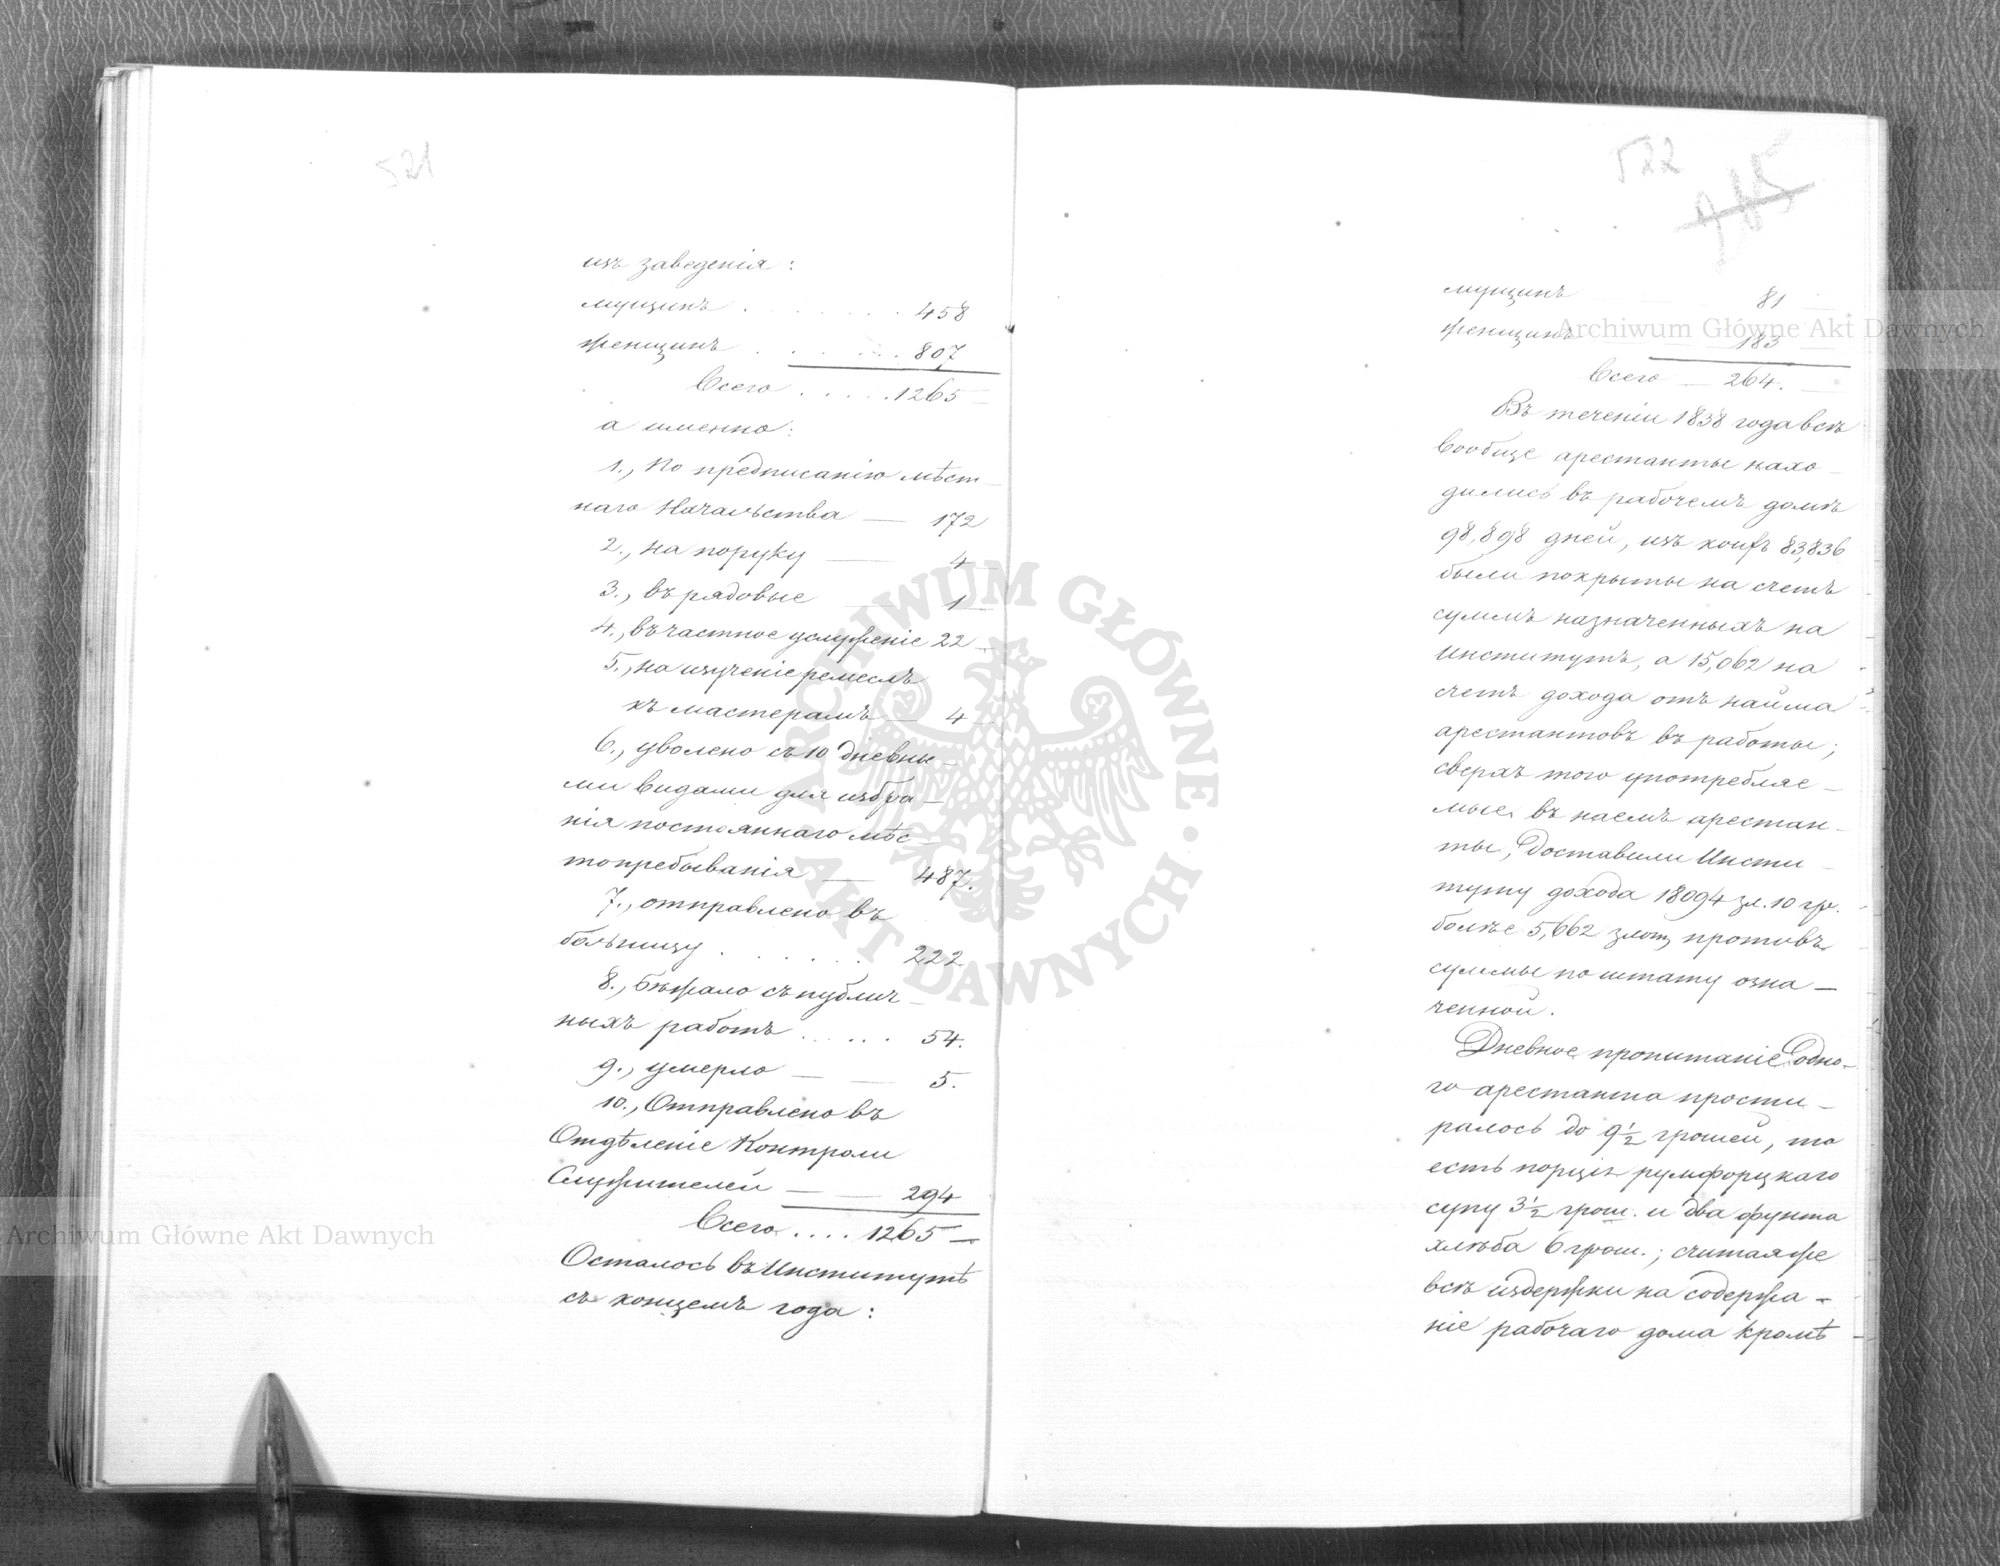 521
изъ заведенія:
мущинъ . . . . . . . 458
женщинъ . . . . . 807
Всего . . . . . 1265 —
а именно:
1., По предписанію мѣст-
наго Начальства — 172
2., на поруку — 4 —
3., въ рядовые — 1 —
4., въ частное услуженіе 22 —
5., на изученіе ремеслъ
къ мастерамъ — 4 —
6., уволено съ 10 дневны-
ми видами для избра-
нія постояннаго мѣс-
топребыванія — 487.
7., отправлено въ
больницу . . . . . . 222
8., Бѣжало съ публич-
ныхъ работъ . . . . . 54.
9., умерло — — 5.
10., Отправлено въ
Отдѣленіе Контроли
Служителей — — 294
Всего . . . . 1265 —
Осталось въ Институтѣ
съ концемъ года:
522
мущинъ 81
женщинъ 183
Всего — 264. —
Въ теченіи 1838 года всѣ
вообще арестанты нахо-
дились въ рабочемъ домѣ
98,898 дней, изъ коихъ 83,836
были покрыты на счетъ
суммъ назначенныхъ на
Институтъ, а 15,062 на
счетъ дохода отъ найма
арестантовъ въ работы;
сверхъ того употребляе-
мые въ наемъ арестан-
ты, доставили Инсти-
туту дохода 18094 зл. 10 гр.
болѣе 5,662 злот, противъ
суммы по штату озна-
ченной.
Дневное пропитаніе одно-
го арестанта прости-
ралось до 9 1/2 грошей, то
есть порція румфорцкаго
супу 3 1/2 грош. и два фунта
хлѣба 6 грош.; считая же
всѣ издержки на содержа-
ніе рабочаго дома кромѣ
Archiwum Główne Akt Dawnych
Archiwum Główne Akt Dawnych
ARCHIWUM GŁÓWNE · AKT DAWNYCH ·